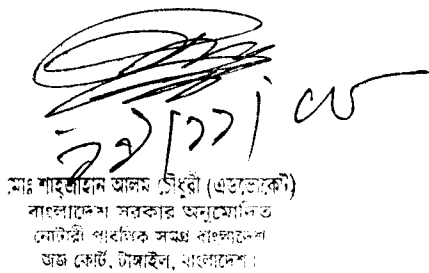 মোঃ শাহজাহান আলম চৌধুরী (এডভোকেট)
বাংলাদেশ সরকার অনুমোদিত
নোটারী পাবলিক সমগ্র বাংলাদেশ
জজ কোর্ট, টাঙ্গাইল, বাংলাদেশ।